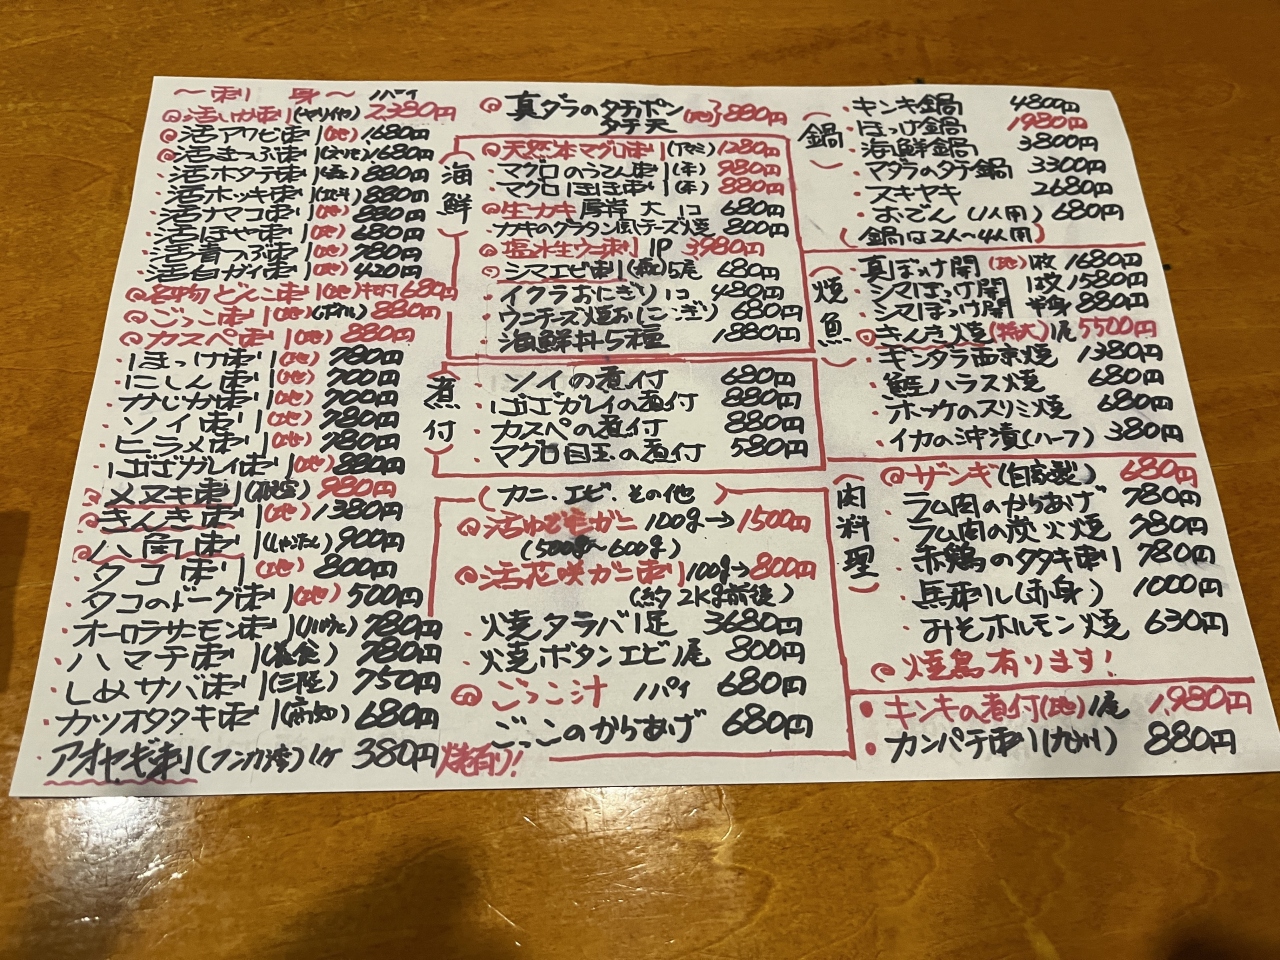 〜刺 身〜 1パイ
活いか刺(ヤリイカ) 2,380円
活アワビ刺(地) 1,680円
活まつぶ刺 1680円
活ホタテ刺 880円
活ホッキ刺 880円
活ナマコ刺(地) 880円
活ほや刺(地) 680円
活青つぶ刺(地) 780円
活白ガイ刺(地) 420円
名物どんこ刺(地) 680円
ごっこ刺(地) 880円
カスペ刺(地) 880円
ほっけ刺(地) 780円
にしん刺(地) 700円
かじか刺(地) 700円
ソイ刺(地) 780円
ヒラメ刺(地) 780円
ババガレイ刺(地) 880円
メヌキ刺 980円
きんき刺(地) 1380円
八角刺 900円
タコ刺(地) 800円
タコのドーグ刺(地) 500円
オーロラサーモン刺(ノルウェー) 780円
ハマチ刺(養食) 780円
しめサバ刺(三陸) 750円
カツオタタキ刺(高知) 680円
アオヤギ刺(フンカ湾)1ケ 380円 焼有り!
真ダラのタチポン
タチ天 (地) 880円
海鮮
天然本マグロ刺 1280円
マグロのうてん刺(本) 980円
マグロほほ刺(本) 880円
生カキ 厚岸 大 1コ 680円
カキのグラタン風チーズ焼 800円
塩水生ウニ刺 1P 3,980円
シマエビ刺 5尾 680円
イクラおにぎり1コ 480円
ウニチーズ焼おにぎり 680円
海鮮丼5種 1880円
煮付
ソイの煮付 680円
ババガレイの煮付 880円
カスペの煮付 880円
マグロ目玉の煮付 580円
(カニ.エビ.その他)
活 ガニ 100g→1500円
(500g〜600g)
活花咲ガニ刺 100g→800円
(約2kg前後)
焼タラバ1足 3680円
焼ボタンエビ1尾 800円
ごっこ汁 1パイ 680円
ごっこのからあげ 680円
(鍋)
キンキ鍋 4800円
ほっけ鍋 1980円
海鮮鍋 3800円
マダラのタチ鍋 3300円
スキヤキ 2680円
おでん(1人用) 680円
(鍋は2人〜4人用)
(焼魚)
真ほっけ開(地)1枚 1680円
シマほっけ開 1枚 1580円
シマほっけ開 半身 880円
きんき焼(特大)1尾 5500円
ギンタラ西京焼 1380円
鮭ハラス焼 680円
ホッケのスリミ焼 680円
イカの沖漬(ハーフ) 380円
(肉料理)
ザンギ(自家製) 680円
ラム肉のからあげ 780円
ラム肉の炭火焼 780円
赤鶏のタタキ刺 780円
馬刺し(赤身) 1000円
みそホルモン焼 630円
焼鳥有ります!
キンキの煮付(地)1尾 1,980円
カンパチ刺(九州) 880円